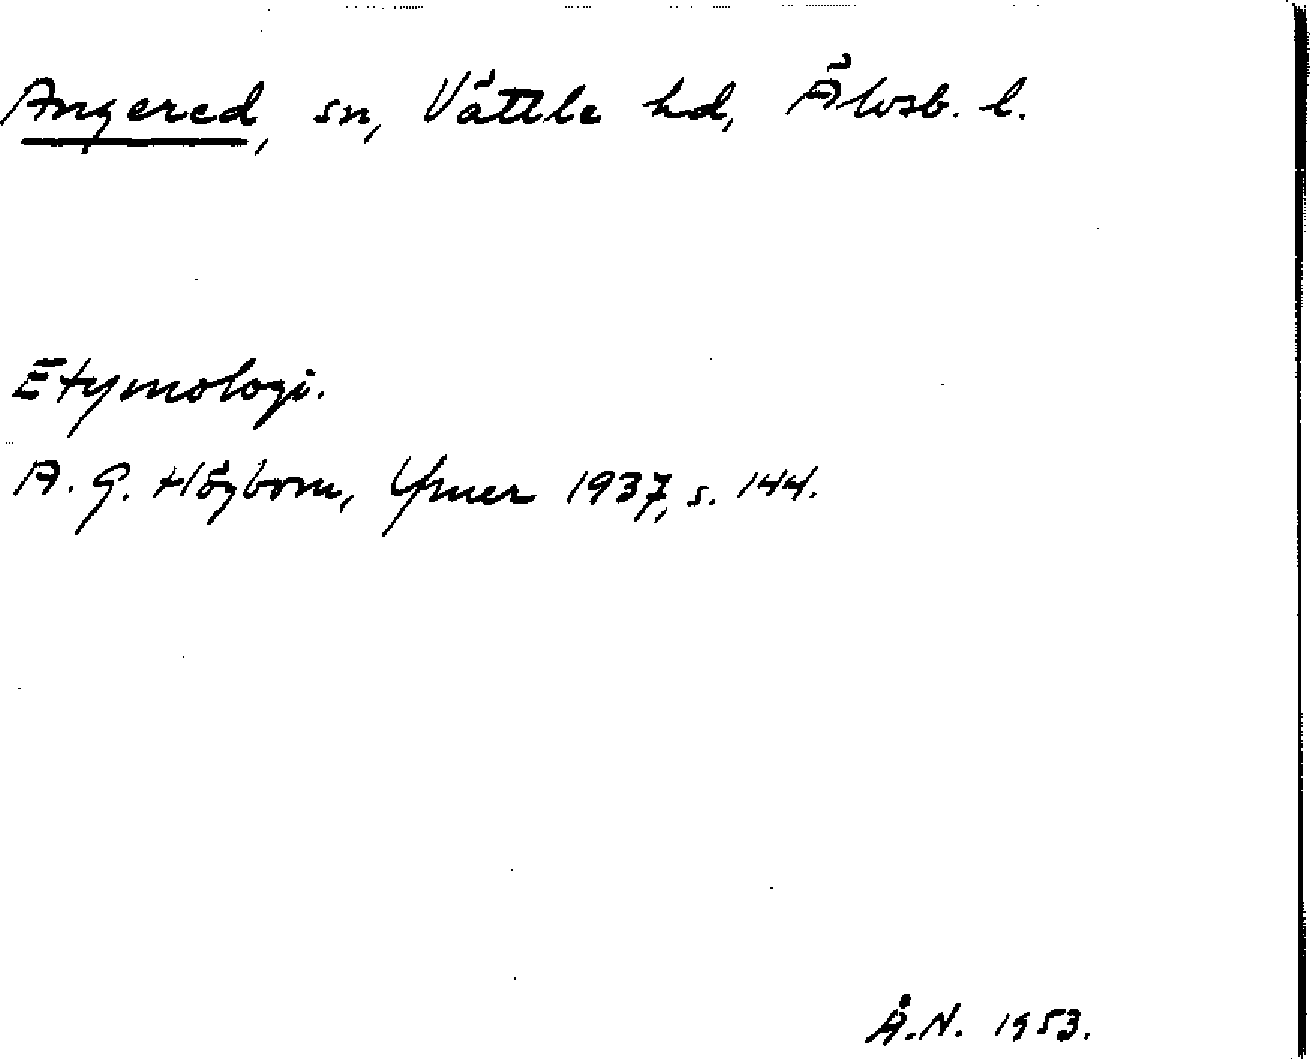 Angered, sn, Vättle hd, Älvsb. l.
Etymologi.
A. G. Högbom, Ymer 1937, s. 144.
Å.N. 1953.